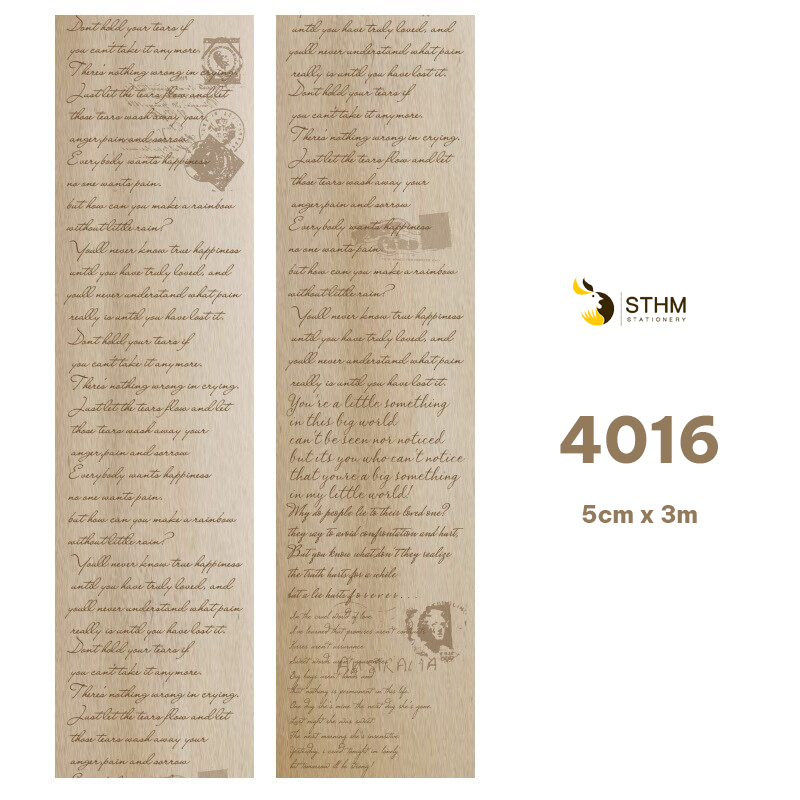 Don't hold your tears if
you can't take it anymore.
There's nothing wrong in crying.
Just let the tears flow and let
those tears wash away your
anger, pain and sorrow
Everybody wants happiness
no one wants pain.
but how can you make a rainbow
without little rain?
You'll never know true happiness
until you have truly loved, and
you'll never understand what pain
really is until you have lost it.
Don't hold your tears if
you can't take it anymore.
There's nothing wrong in crying.
Just let the tears flow and let
those tears wash away your
anger, pain and sorrow
Everybody wants happiness
no one wants pain.
but how can you make a rainbow
without little rain?
You'll never know true happiness
until you have truly loved, and
you'll never understand what pain
really is until you have lost it.
Don't hold your tears if
you can't take it anymore.
There's nothing wrong in crying.
Just let the tears flow and let
those tears wash away your
anger, pain and sorrow
until you have truly loved, and
you'll never understand what pain
really is until you have lost it.
Don't hold your tears if
you can't take it anymore.
There's nothing wrong in crying.
Just let the tears flow and let
those tears wash away your
anger, pain and sorrow
Everybody wants happiness
no one wants pain.
but how can you make a rainbow
without little rain?
You'll never know true happiness
until you have truly loved, and
you'll never understand what pain
really is until you have lost it.
You're a little something
in this big world
can't be seen nor noticed
but its you who can't notice
that you're a big something
in my little world!
Why do people lie to their loved one?
they say to avoid confrontation and hurt,
But you know what don't they realize
the truth hurts for a while
but a lie hurts forever....
In the cruel world of love
I've learned that promises aren't
Kisses aren't
Sweet words
AUSTRALIA
that nothing is permanent in this life
One day she's mine the next day she's gone.
Last night she was sweet
The next morning she's
Yesterday i cried tonight im lonely
but tomorrow ill be strong!
STHM
STATIONERY
4016
5cm x 3m